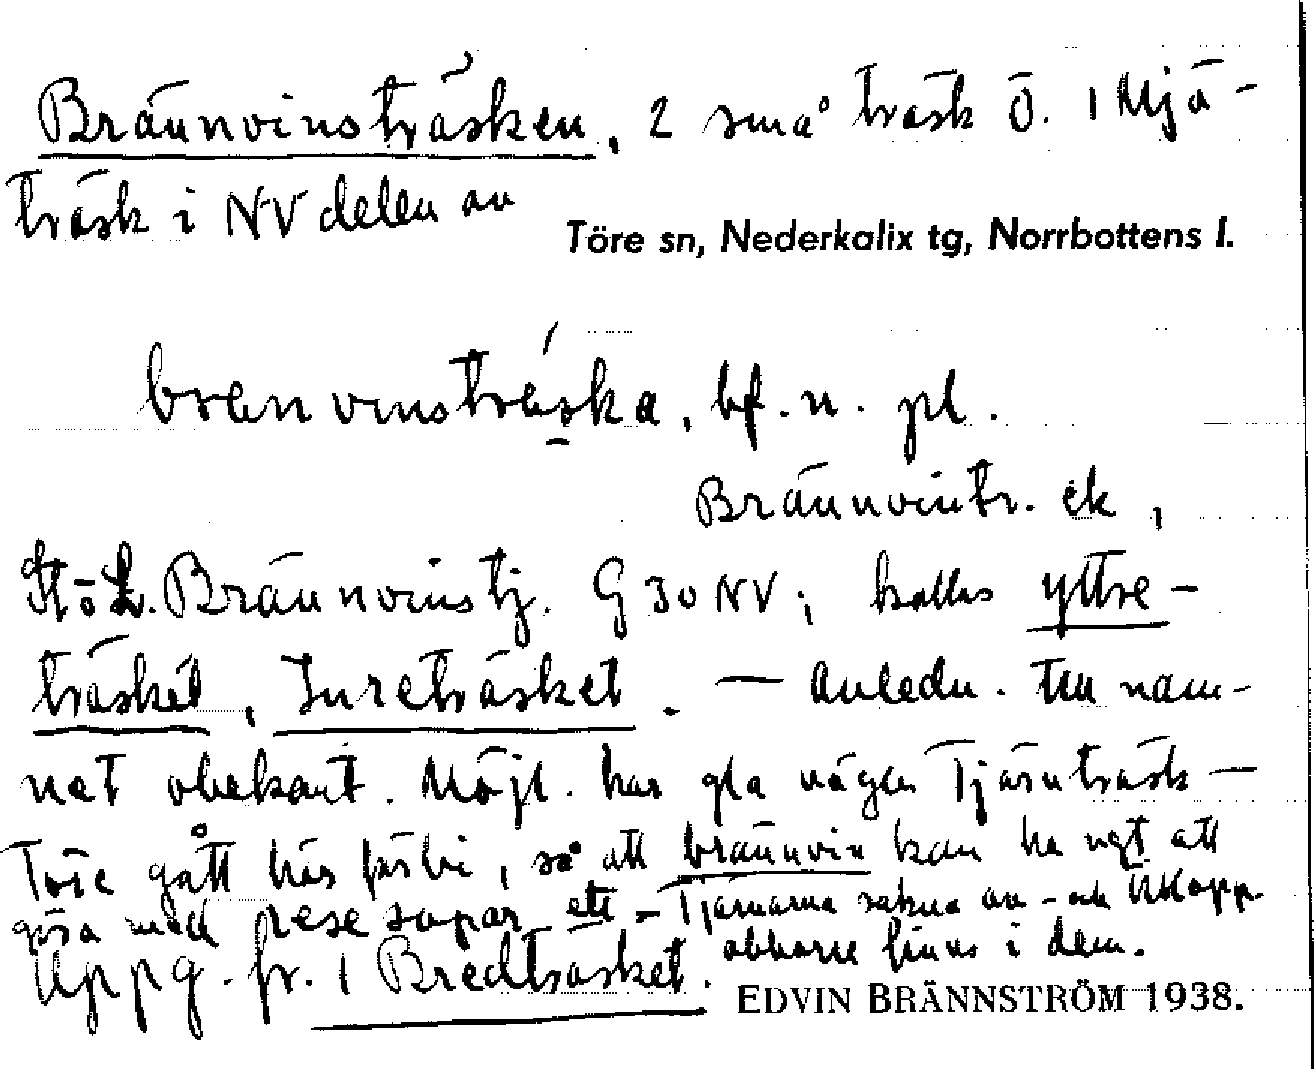 Brännvinsträsken, 2 små träsk Ö. 1 Mjö-
träsk i NV delen av
Töre sn, Nederkalix tg, Norrbottens l.
brenvinstreska, bf. n. pl.
Brännvintr. ek,
St o L. Brännvinstj. G 30 NV; kallas yttre-
träsket, Inreträsket. — Anledn. till nam-
net obekant. Möjl. har gla vägen Tjärnträsk —
Töre gått här förbi, så att brännvin kan ha ngt att
göra med resesupar etc — Tjärnarna sakna av- och
abborre finns i dem.
Uppg. fr. 1 Bredträsket.
EDVIN BRÄNNSTRÖM 1938.